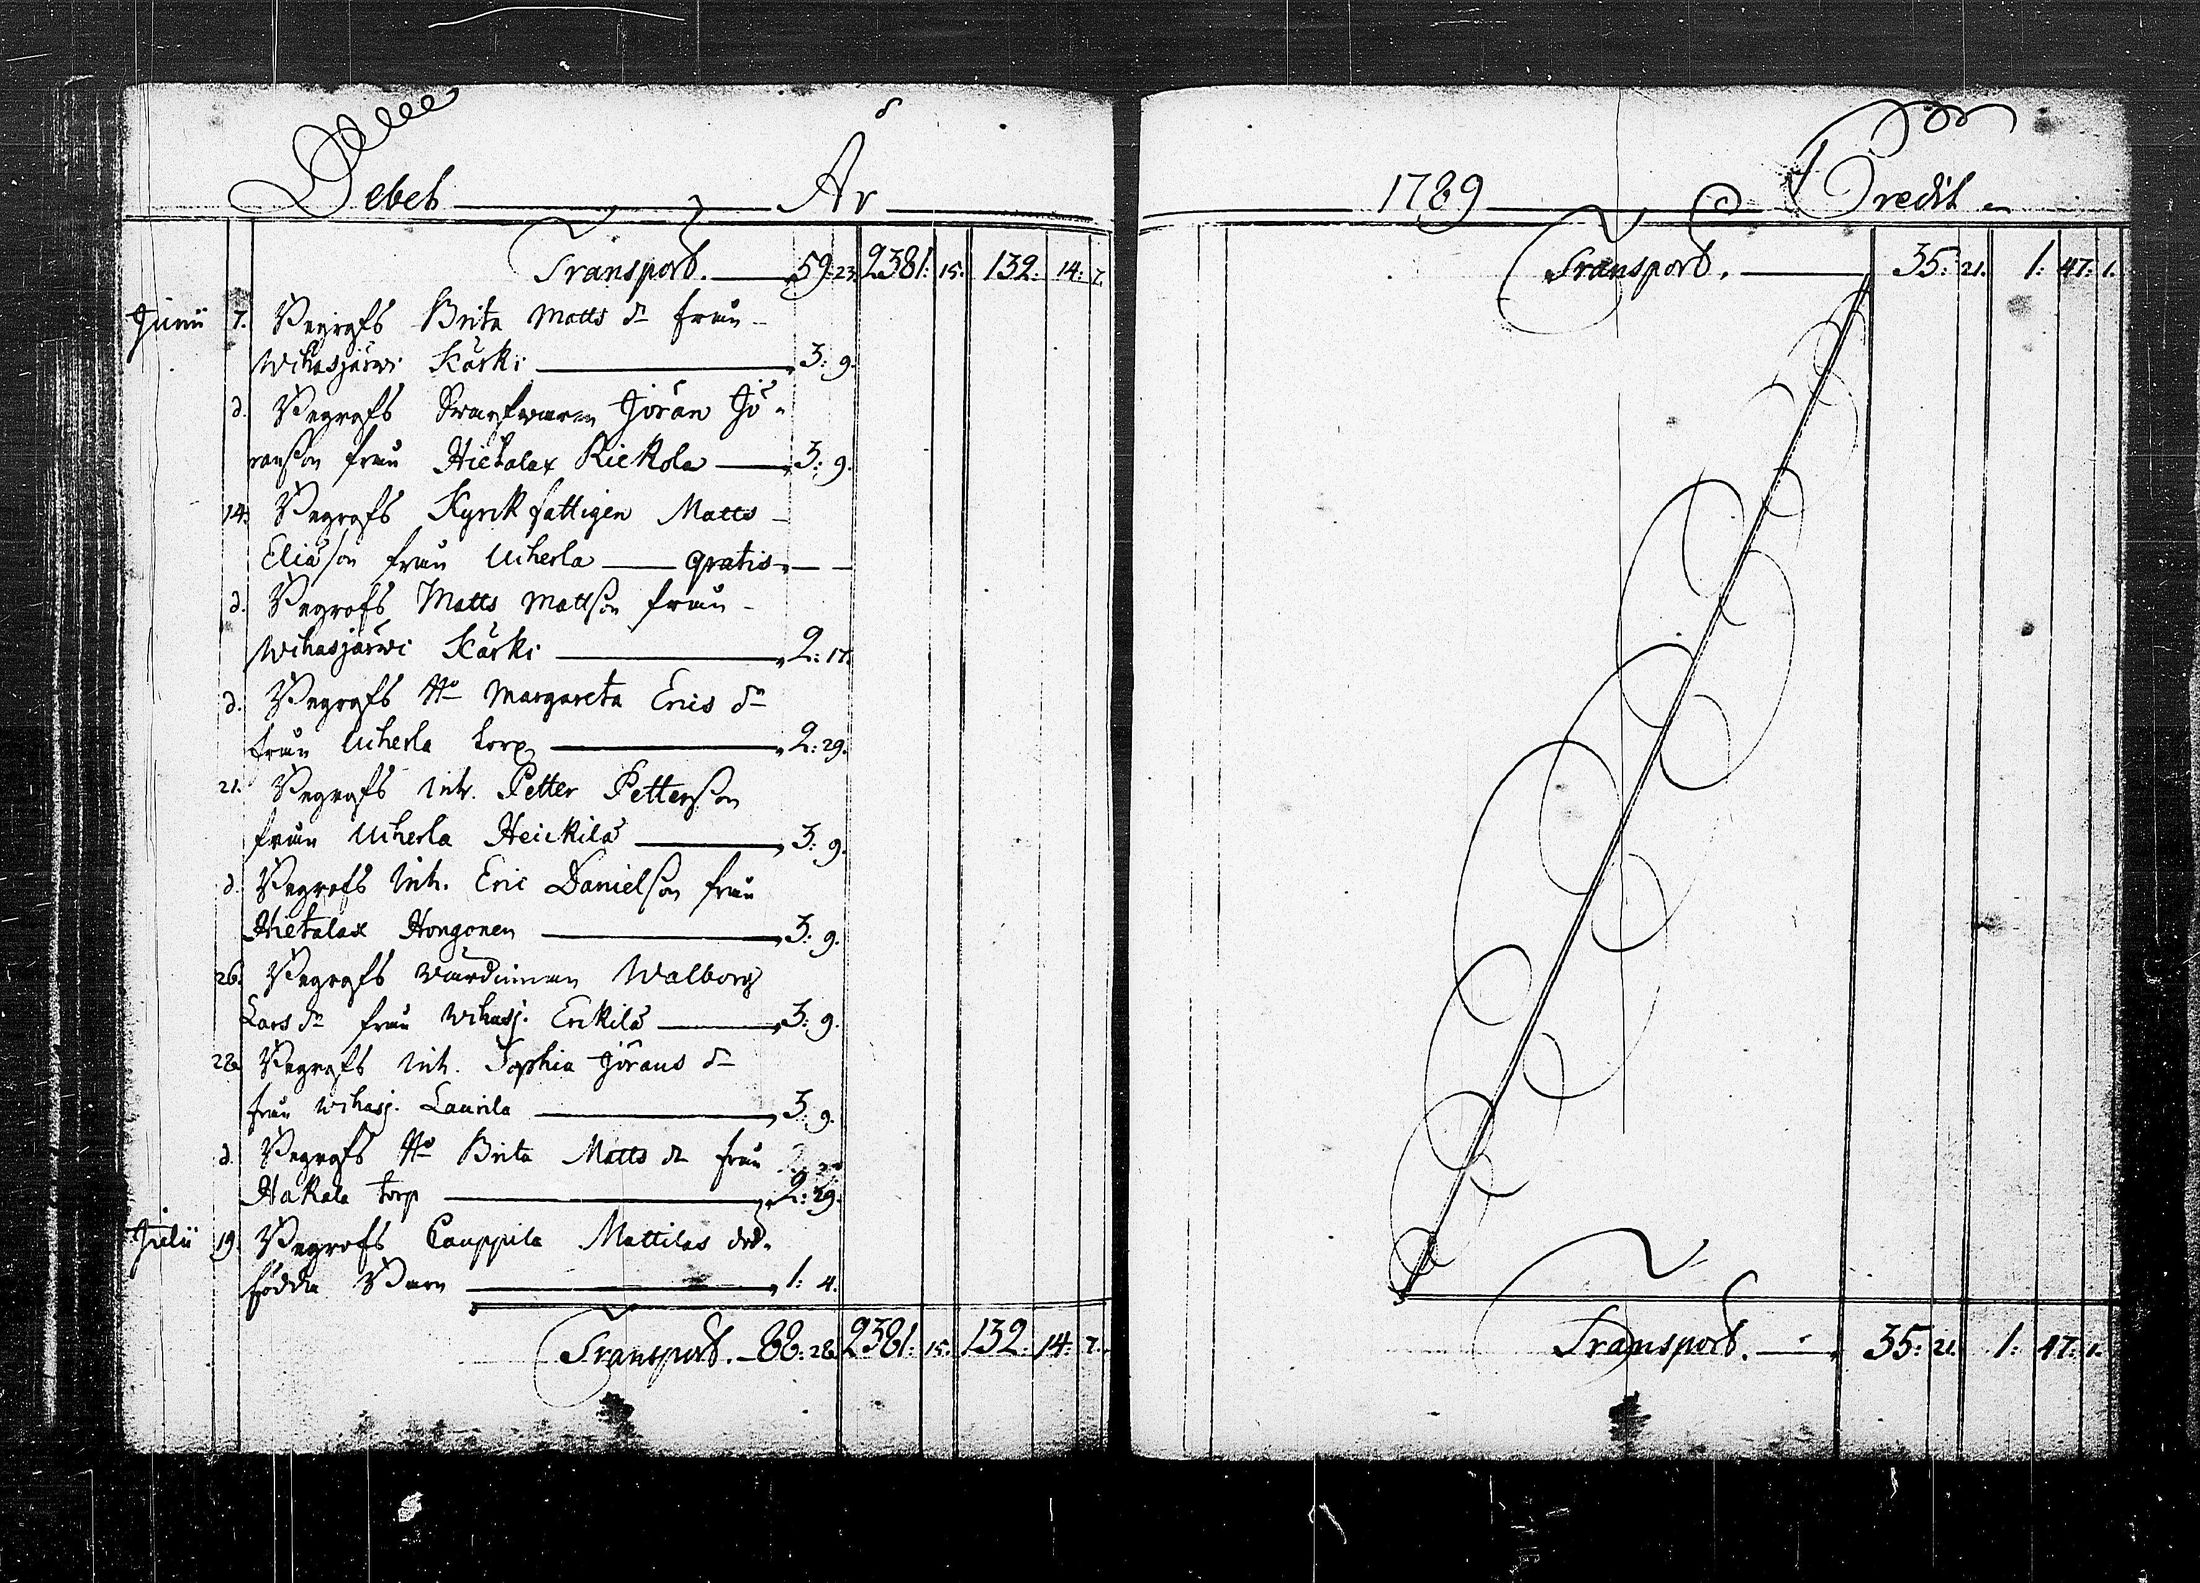 Debet År
Transport. 59: 23. 2381: 15. 132: 14: 7.
Junii 7. Begrofs Brita Matts dr från
Wihasjärwi Kärki 3: 9.
d. Begrofs Swarfwaren Jöran Jö-
ranson från Hietalax Rickola 3: 9.
14. Begrofs Kyrk fattigen Matts
Eliäson från Uiherla gratis
d. Begrofs Matts Mattson från
Wihasjärwi Kärki 2: 17.
d. Begrofs Margareta Erics dr
från Uiherla torp 2: 29.
21. Begrofs Inh. Petter Petterson
från Uiherla Heickilä 3: 9.
d. Begrofs Inh. Eric Danielson från
Hietalax Hongonen 3: 9.
26. Begrofs Wärdinnan Walborg
Lars dr från Wihasj. Erkilä 3: 9.
28. Begrofs Inh. Sophia Jörans dr
från Wihasj. Laurila 3: 9.
d. Begrofs Brita Matts dr från
Hakala torp 2: 29.
Julii 19. Begrofs Cauppila Mattilas död-
födda Barn 1: 4.
Transport. 88: 28. 2381: 15. 132: 14: 7.
1789 Credit
Transport. 35: 21. 1: 47: 1.
Transport. 35: 21. 1: 47: 1.